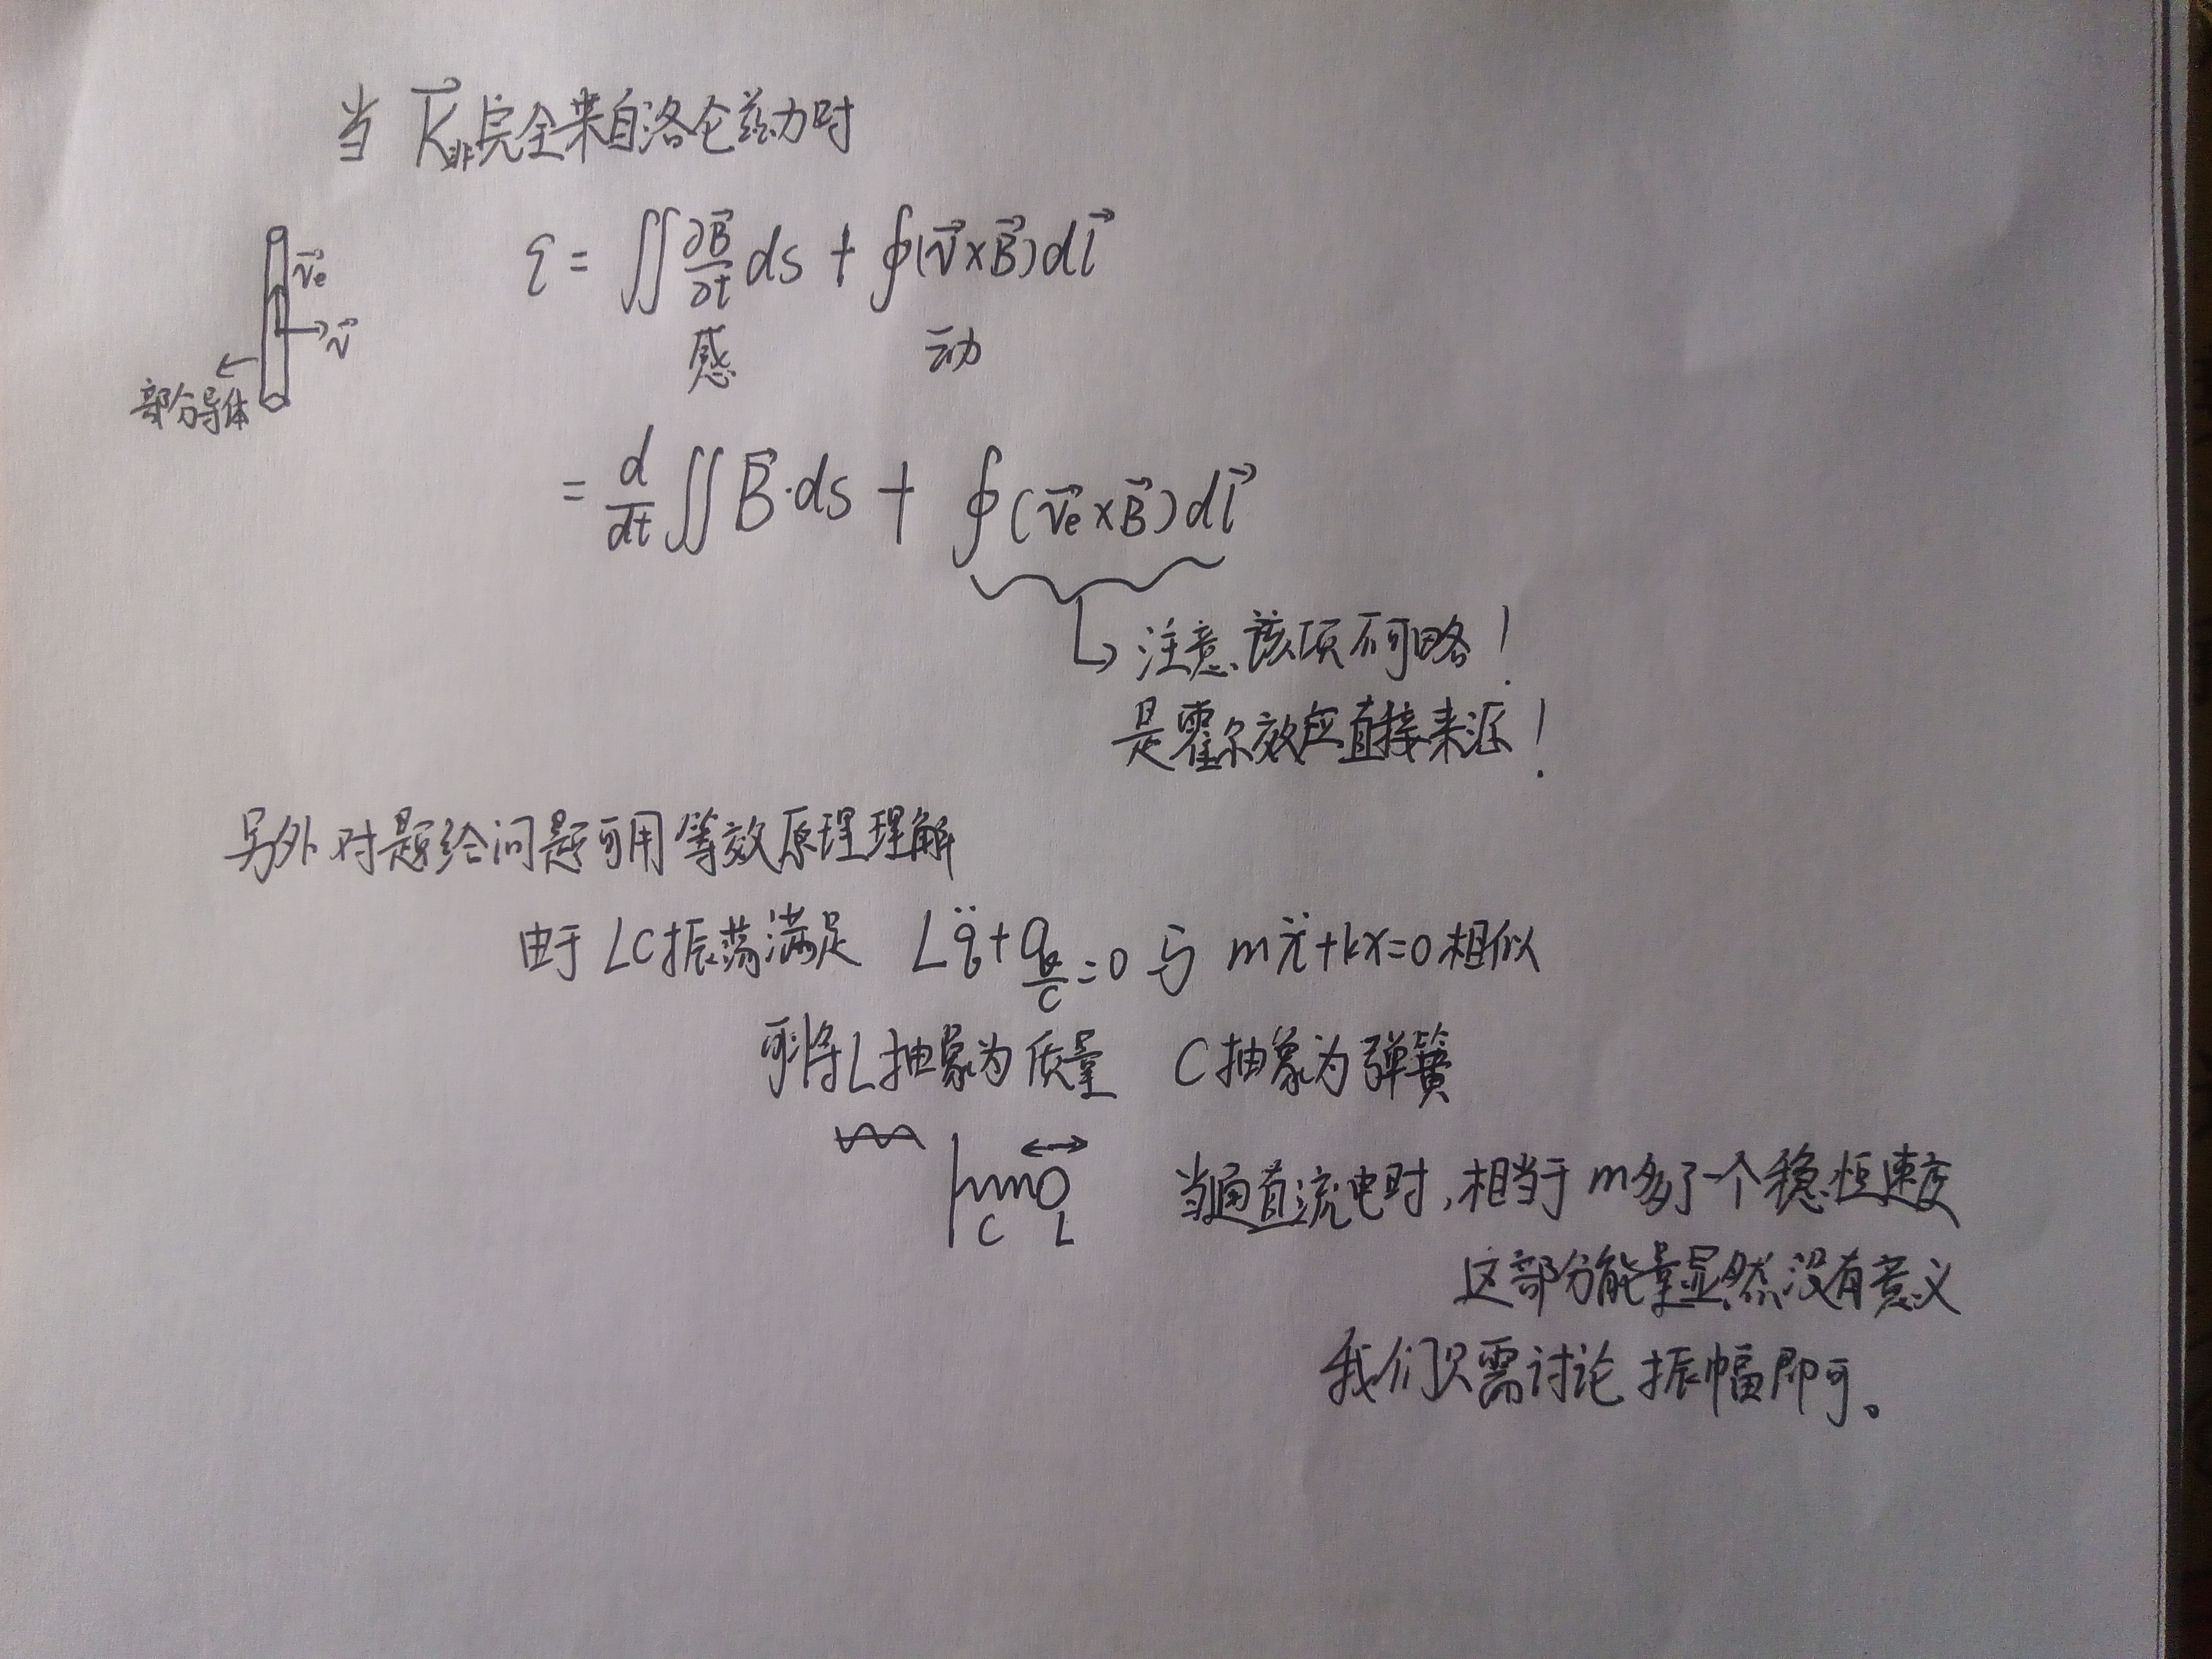 当 K⃗非完全来自洛仑兹力时
ξ = ∬ ∂B⃗/∂t ds + ∮(v⃗×B⃗)dl⃗
感 动
v⃗e
v⃗
部分导体
= d/dt ∬ B⃗·ds + ∮(v⃗e×B⃗)dl⃗
注意该项不可略！
是霍尔效应直接来源！
另外对题给问题可用等效原理理解
由于LC振荡满足 Lq̈+q/C=0 与 mẍ+kx=0相似
可将L抽象为质量 C抽象为弹簧
C L
当通直流电时,相当于m多了一个稳恒速度
这部分能量显然没有意义
我们只需讨论振幅即可。